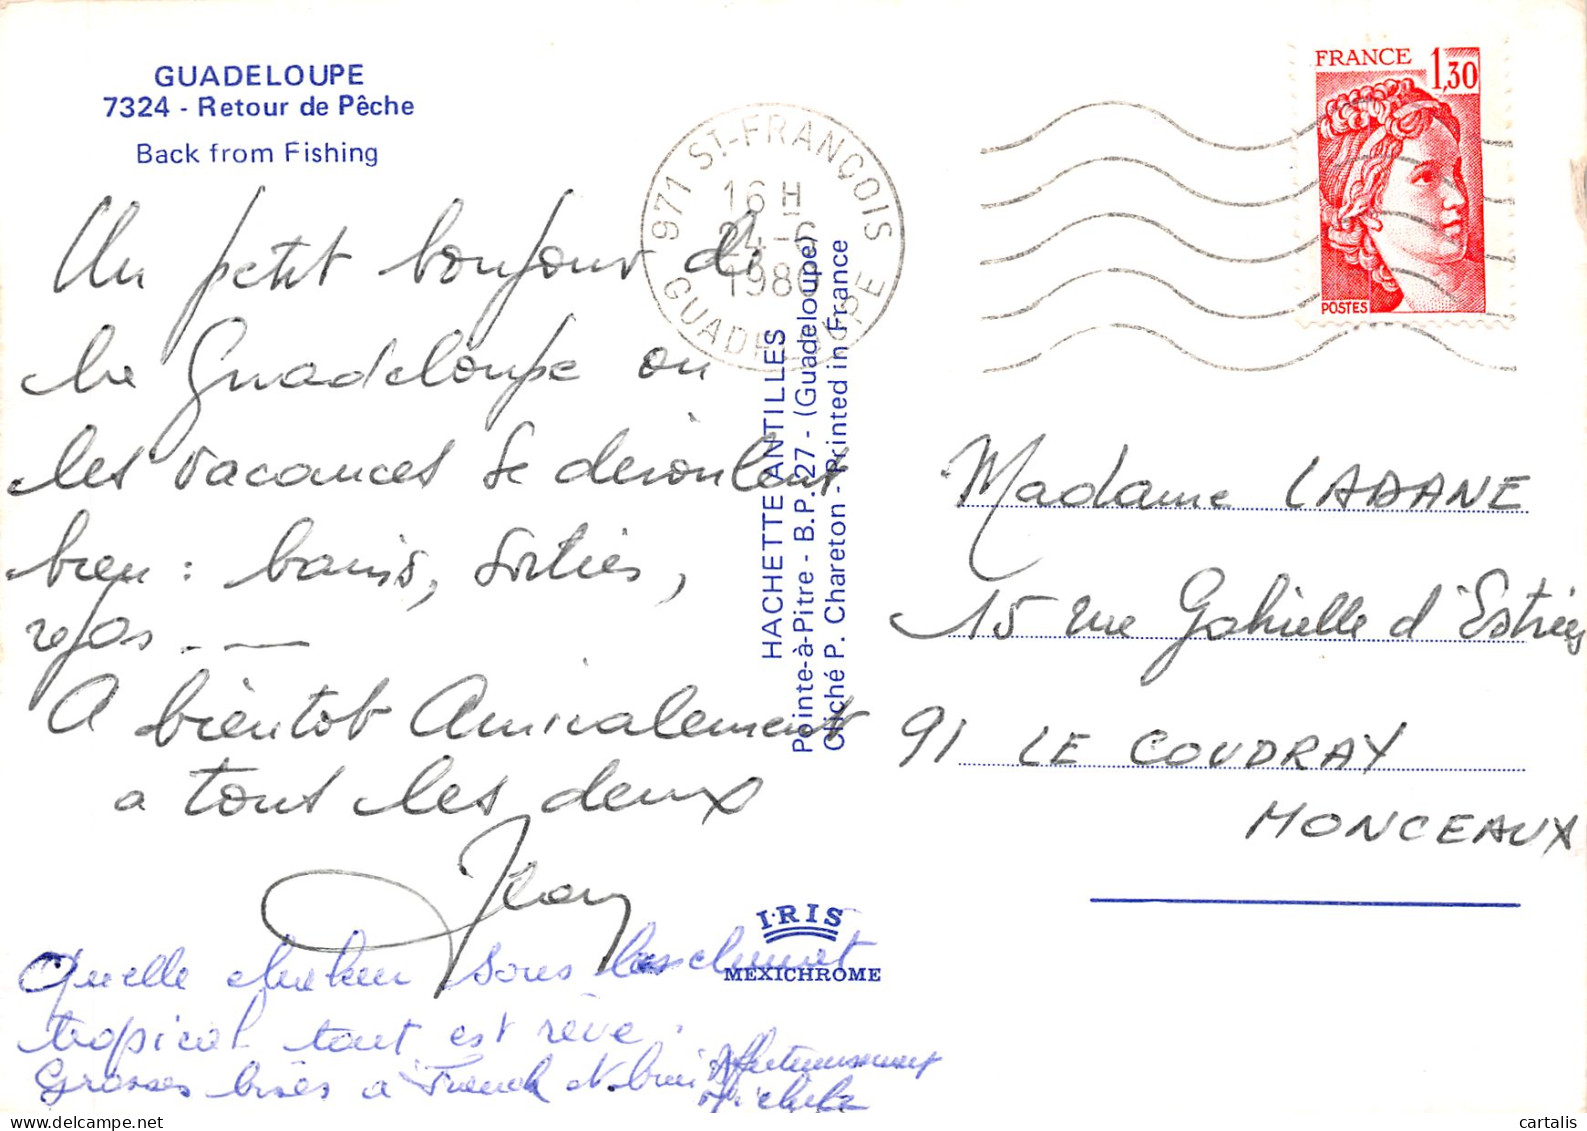 GUADELOUPE
7324 - Retour de Pêche
Back from Fishing
Un petit bonjour de
la Guadeloupe ou
les vacances se déroulent
bien : bains, sorties,
repos ...
A bientot Amicalement
a tous les deux
Jean
Quelle chaleur sous les climat
tropical tout est rêve.
Grosses bises a Franck et
Affectueusement
Michele
971 ST-FRANÇOIS
16 H
24-6
1980
GUADELOUPE
HACHETTE ANTILLES
Pointe-à-Pitre - B.P. 27 - (Guadeloupe)
Cliché P. Chareton - Printed in France
I·RIS
MEXICHROME
FRANCE 1,30
POSTES
Madame LADANE
15 rue Gabrielle d'Estrées
91 LE COUDRAY
MONCEAUX
cartalis